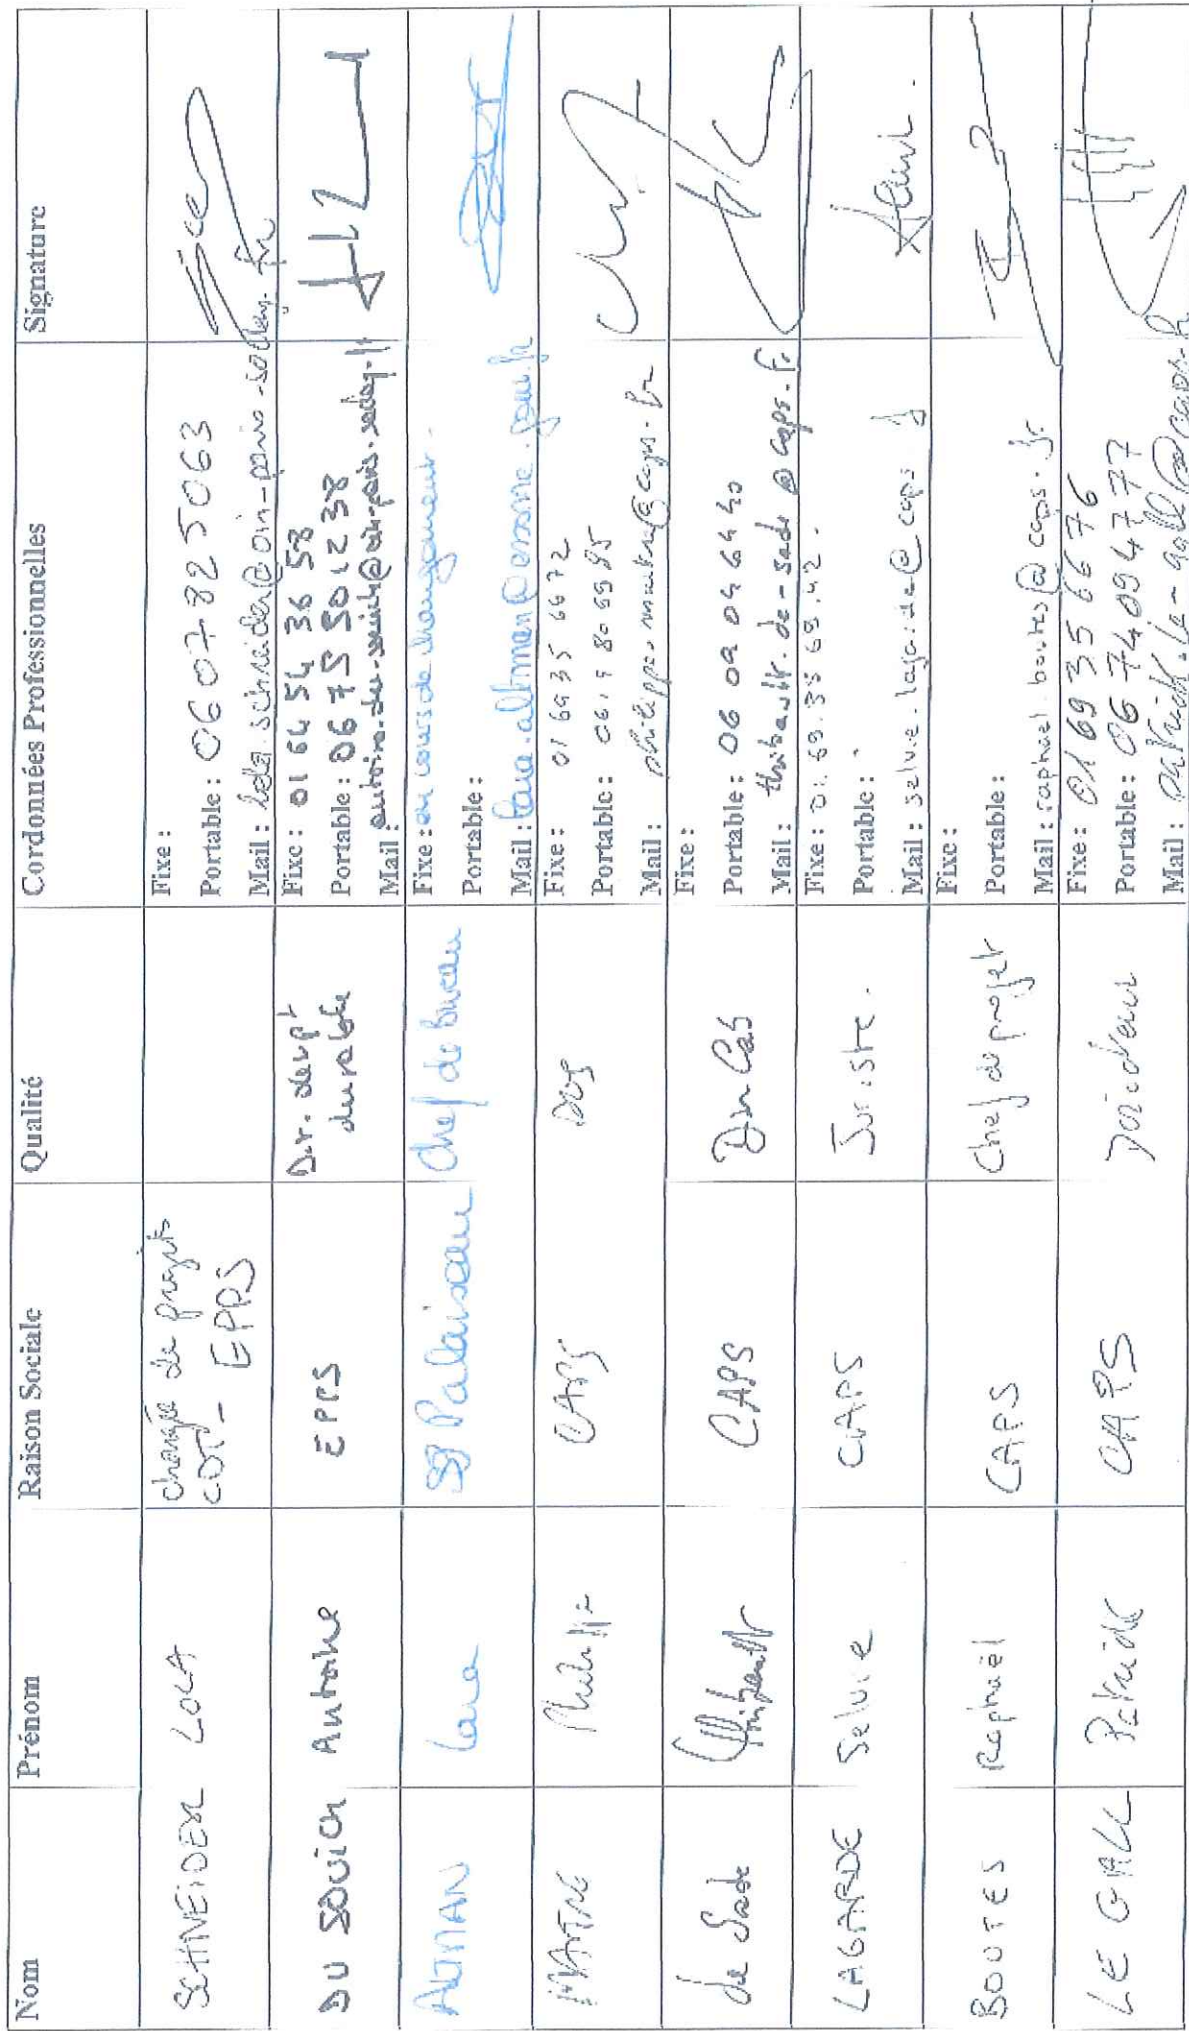 Nom Prénom Raison Sociale Qualité Cordonnées Professionnelles Signature
SCHNEIDER LOLA chargée de projets
CDT - EPPS
Fixe :
Portable : 06 07 82 50 63
Mail :
DU SOUICH Antoine EPPS Dir. devpt
durable
Fixe : 01 64 54 36 58
Portable : 06 75 50 12 38
Mail :
ALTMAN Lara SP Palaiseau Chef de bureau
Fixe : en cours de changement.
Portable :
Mail : lara.altman@essonne.gouv.fr
Philippe CAPS DGS
Fixe : 01 69 35 66 72
Portable :
Mail :
de Sade Thibault CAPS Dir Cab
Fixe :
Portable : 06
Mail : thibault.de-sade@caps.fr
LAGARDE Selvie CAPS Juriste.
Fixe : 01.69.35.69.42.
Portable :
Mail : selvie.lagarde@caps.fr
BOUTES Raphaël CAPS Chef de projet
Fixe :
Portable :
Mail : raphael.boutes@caps.fr
LE GALL Patrick CAPS
Fixe : 01 69 35 66 76
Portable : 06 74 09 47 77
Mail : patrick.le-gall@caps.fr